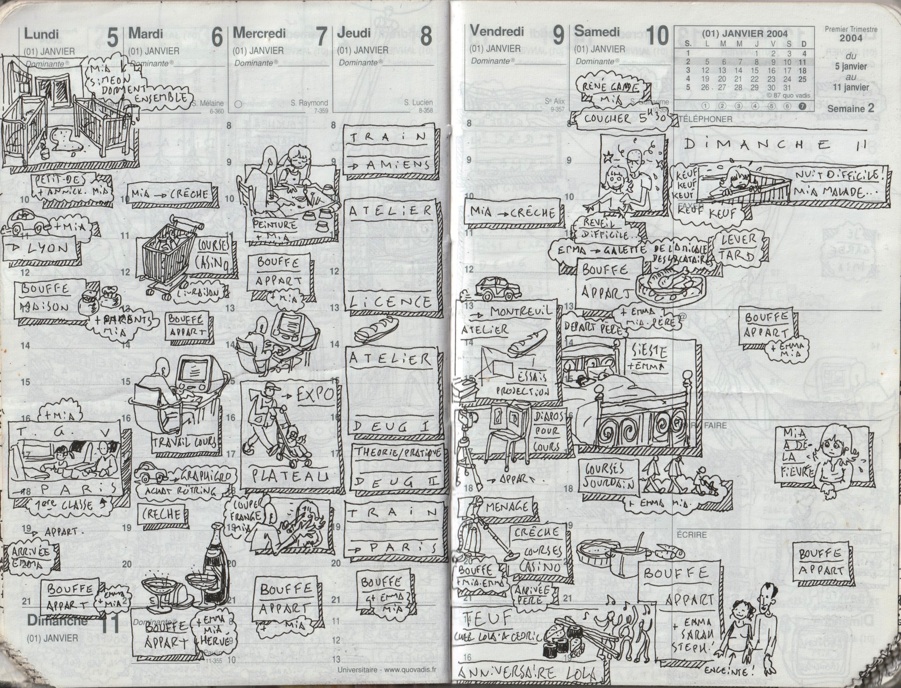 Lundi 5
(01) JANVIER
Dominante
MIA
SIMEON
DORMENT
ENSEMBLE
PETIT-DEJ
+ ANNICK. MIA
+ MIA
→ LYON
BOUFFE
MAISON
+ PARENTS
MIA
+ MIA
T. G. V
PARIS
1ère CLASSE
→ APPART.
ARRIVÉE
EMMA
BOUFFE
APPART
+ EMMA
MIA
Dimanche 11
(01) JANVIER
Mardi 6
(01) JANVIER
Dominante
S. Mélaine
MIA → CRÊCHE
COURSES
CASINO
LIVRAISON
BOUFFE
APPART
TRAVAIL COURS
→ GRAPHIGRO
ACHAT ROTRING
CRECHE
BOUFFE
APPART
+ EMMA
MIA
HERVÉ
Mercredi 7
(01) JANVIER
Dominante
S. Raymond
7-359
PEINTURE
+ MIA
BOUFFE
APPART
+ MIA
→ EXPO
PLATEAU
COUPER
FRANGE
MIA
BOUFFE
APPART
+ MIA
Jeudi 8
(01) JANVIER
Dominante
S. Lucien
8-358
TRAIN
→ AMIENS
ATELIER
LICENCE
ATELIER
DEUG I
THEORIE/PRATIQUE
DEUG II
TRAIN
→ PARIS
BOUFFE
+ EMMA
MIA
Universitaire - www.quovadis.fr
Vendredi 9
(01) JANVIER
Dominante
MIA → CRÊCHE
→ MONTREUIL
ATELIER
ESSAIS
PROJECTION
DIAPOS
POUR
COURS
→ APPART.
MENAGE
CRÊCHE
COURSES
CASINO
BOUFFE
+ MIA-EMMA
ARRIVÉE
PÈRE
TEUF
CHEZ LOLA & CEDRIC
ANNIVERSAIRE LOLA
Samedi 10
(01) JANVIER
Dominante
MIA
COUCHER 5H30
REVEIL
DIFFICILE...
EMMA → GALETTE
BOUFFE
APPART
+ EMMA
MIA-PÈRE
LEVER
TARD
DEPART PÈRE
SIESTE
+ EMMA
COURSES
JOURDAIN
+ EMMA MIA
BOUFFE
APPART
+ EMMA
SARAH
STEPH.
ENCEINTE!
(01) JANVIER 2004
S. L M M J V S D
1 1 2 3 4
2 5 6 7 8 9 10 11
3 12 13 14 15 16 17 18
4 19 20 21 22 23 24 25
5 26 27 28 29 30 31
© 97 quo vadis
1 2 3 4 5 6 7
Premier Trimestre
2004
du
5 janvier
au
11 janvier
Semaine 2
TÉLÉPHONER
DIMANCHE 11
KEUF
KEUF
KEUF
KEUF KEUF
NUIT DIFFICILE!
MIA MALADE...
BOUFFE
APPART
+ EMMA
MIA
FAIRE
MIA
A DE
LA
FIEVRE
ÉCRIRE
BOUFFE
APPART